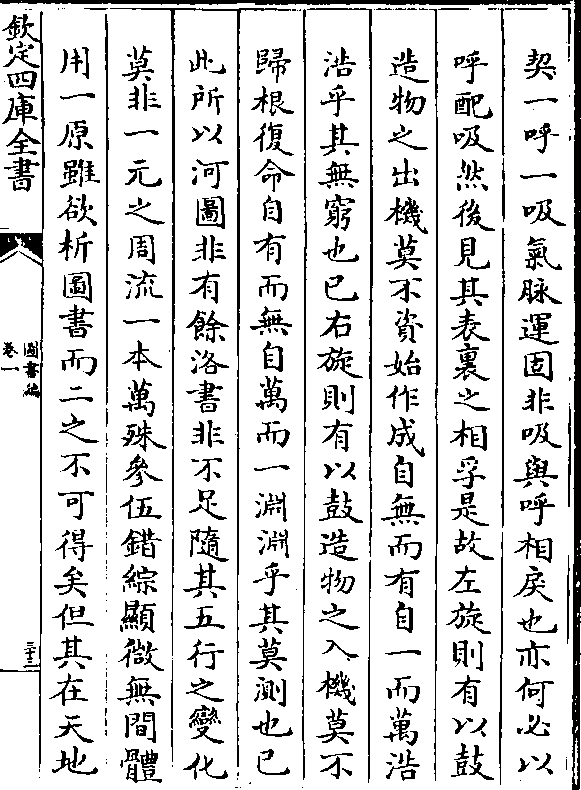 契一呼一吸氣脉運固非吸與呼相戾也亦何必以
呼配吸然後見其表裏之相孚是故左旋則有以鼓
造物之出機莫不資始作成自無而有自一而萬浩
浩乎其無窮也已右旋則有以鼓造物之入機莫不
歸根復命自有而無自萬而一淵淵乎其莫測也已
此所以河圖非有餘洛書非不足隨其五行之變化
莫非一元之周流一本萬殊參伍錯綜顯微無間體
用一原雖欲析圖書而二之不可得矣但其在天地
欽定四庫全書
圖書編
卷一
三十三